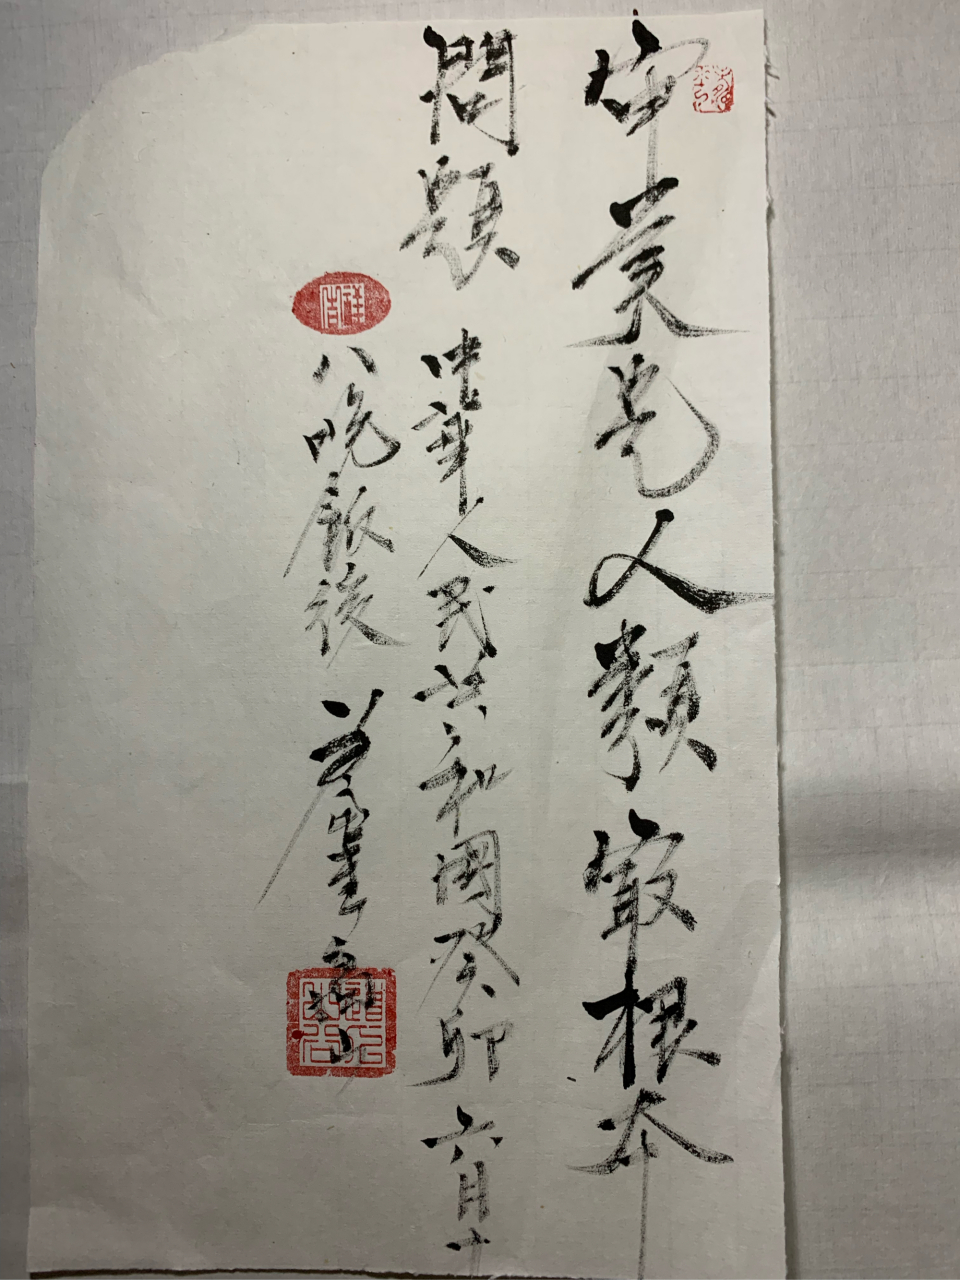 审美是人類最根本
問題 中華人民共和國癸卯六月十
八晚飯後
吉祥